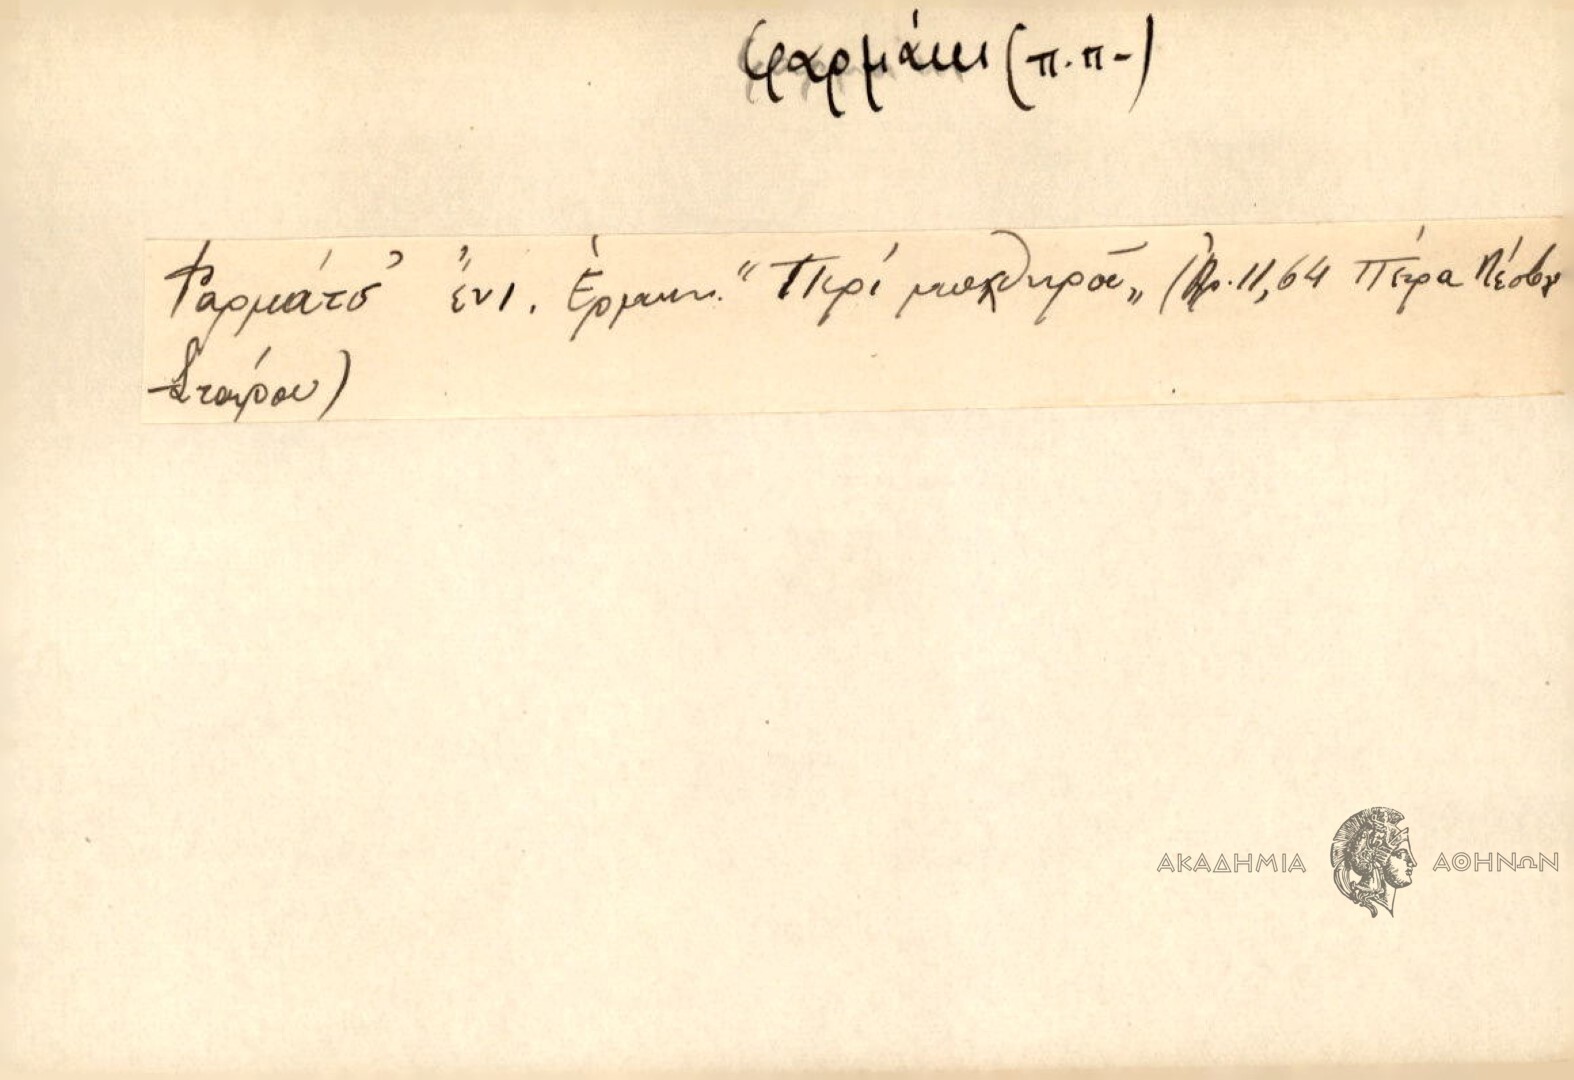 φαρμάκι (π.π-)
Φαρμάτσ' ἔνι. Ἑρμην. "Περί μοχθηροῦ" (Ἀρ. 11, 64 Πέτρα Λέσβου
Σταύρου)
ΑΚΑΔΗΜΙΑ ΑΘΗΝΩΝ